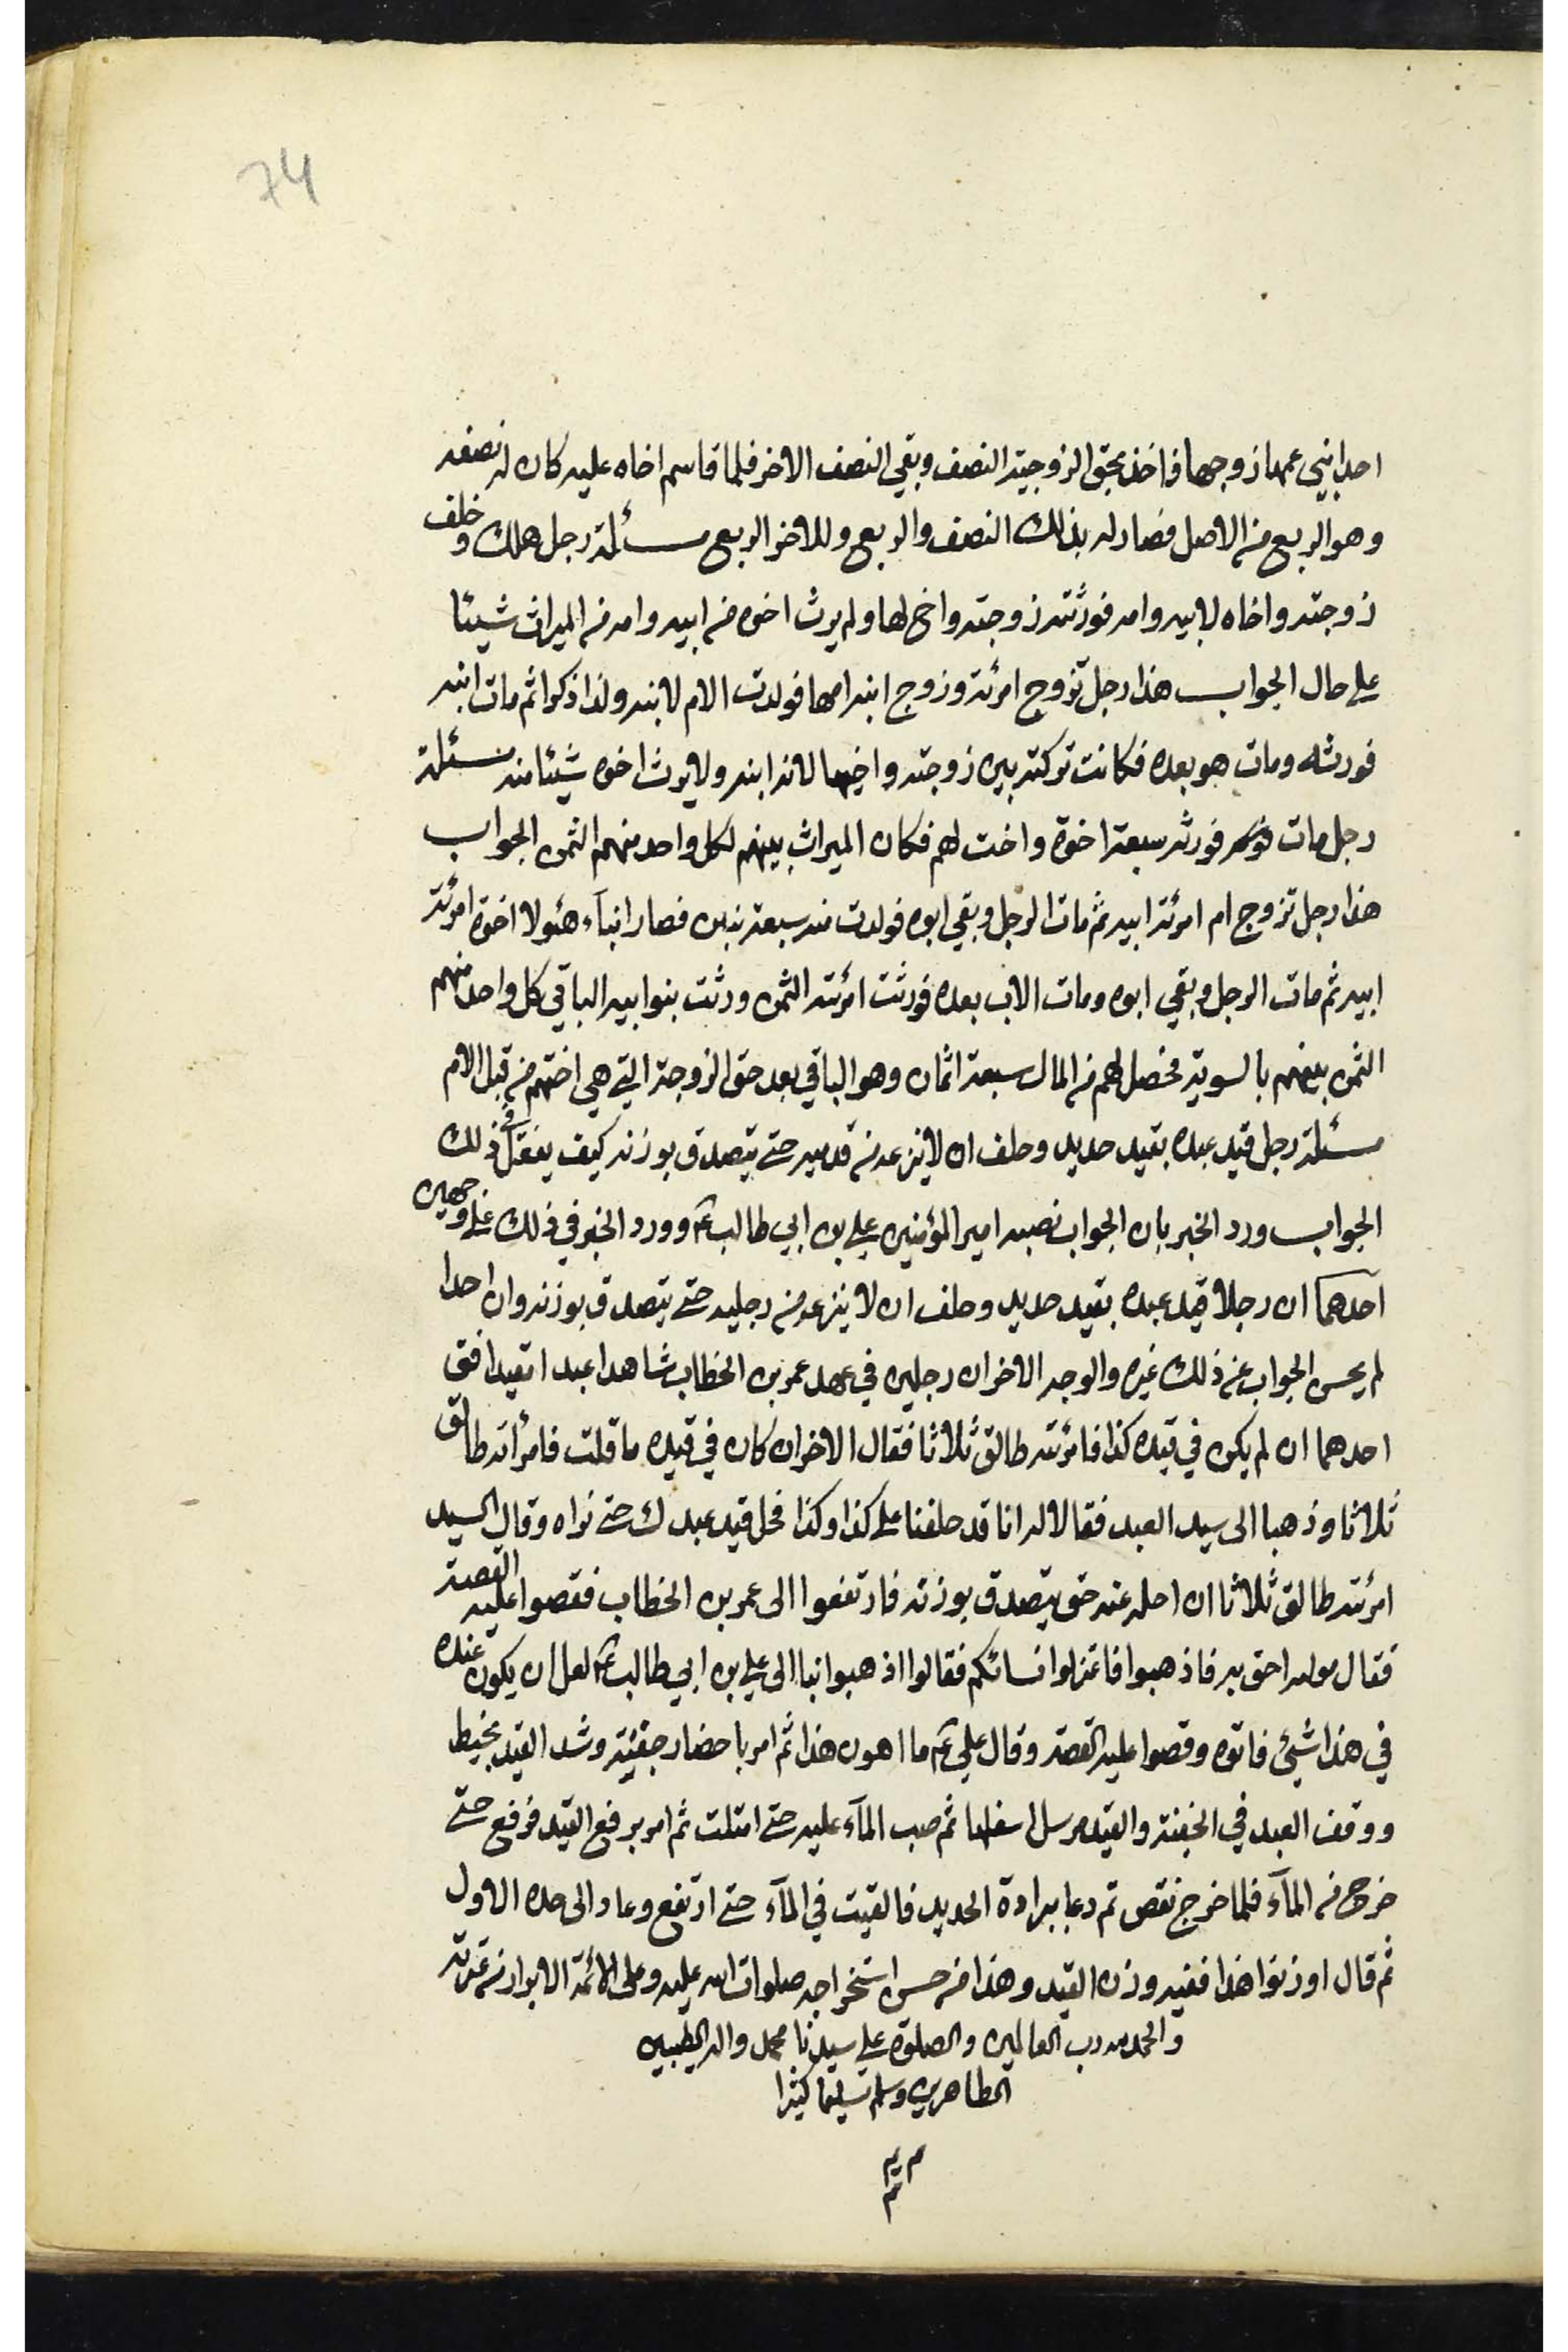 74
احد ابني عمها زوجها فاخذ بحق الزوجية النصف وبقي النصف الاخر فلما قاسم اخاه عليه كان له نصفه
وهو الربع من الاصل فصار له بذلك النصف والربع وللاخر الربع مسئلة رجل هلك وخلف
زوجته واخاه لابيه وامه فورثته زوجته واخ لها ولم يرث اخوه من ابيه وامه من الميراث شيئا
على حال الجواب هذا رجل تزوج امرئة وزوج ابنه امها فولدت الام لابنه ولدا ذكرا ثم مات ابنه
فورثه ومات هو بعده فكانت تركته بين زوجته واخيها لانه ابن ابنه ولا يرث اخوه شيئا منه مسئلة
رجل مات فورثه سبعة اخوة واخت لهم فكان الميراث بينهم لكل واحد منهم الثمن الجواب
هذا رجل تزوج ام امرئة ابيه ثم مات الرجل وبقي ابوه فولدت منه سبعة بنين فصار ابناء هئولا اخوة امرئة
ابيه ثم مات الرجل وبقي ابوه ومات الاب بعده فورثت امرئته الثمن ورثت بنوا بيه الباقي كل واحد منهم
الثمن بينهم بالسوية فحصل لهم من المال سبعة اثمان وهو الباقي بعد حق الزوجة التي هي اختهم من قبل الام
مسئلة رجل قيد عبده بقيد حديد وحلف ان لا ينزعه من قدميه حتى يتصدق بوزنه كيف يفعل في ذلك
الجواب ورد الخبر بان الجواب نصبه امير المؤمنين علي بن ابي طالب ع وورد الخبر في ذلك على وجهين
احدهما ان رجلا قيد عبده بقيد حديد وحلف ان لا ينزعه من رجليه حتى يتصدق بوزنه وان احدا
لم يحسن الجواب عن ذلك غيره والوجه الاخر ان رجلين في عهد عمر بن الخطاب شاهدا عبدا مقيدا فق
احدهما ان لم يكن في قيده كذا فامرئته طالق ثلاثا فقال الاخر ان كان في قيده ما قلت فامرأته طالق
ثلاثا وذهبا الى سيد العبد فقالا له انا قد حلفنا على كذا وكذا فحل قيد عبدك حتى نراه وقال السيد
امرئته طالق ثلاثا ان احله عنه حتى يتصدق بوزنه فارتفعوا الى عمر بن الخطاب فقصوا عليه القصة
فقال مولاه احق به فاذهبوا فاعتزلوا نسائكم فقالوا اذهبوا بنا الى علي بن ابي طالب ع لعل ان يكون عنده
في هذا شيئ فاتوه وقصوا عليه القصة وقال علي ع ما اهون هذا ثم امر باحضار جفنة وشد القيد بخيط
ووقف العبد في الجفنة والقيد مرسل اسفلها ثم صب المآء عليه حتى امتلت ثم امر برفع القيد فرفع حتى
خرج من المآء فلما خرج نقص ثم دعا ببرادة الحديد فالقيت في المآء حتى ارتفع وعاد الى حده الاول
ثم قال اوزنوا هذا ففيه وزن القيد وهذا من حسن استخراجه صلوات الله عليه وعلى الائمة الابرار من عترته
والحمد لله رب العالمين والصلوة على سيدنا محمد واله الطيبين
الطاهرين وسلم تسليما كثيرا